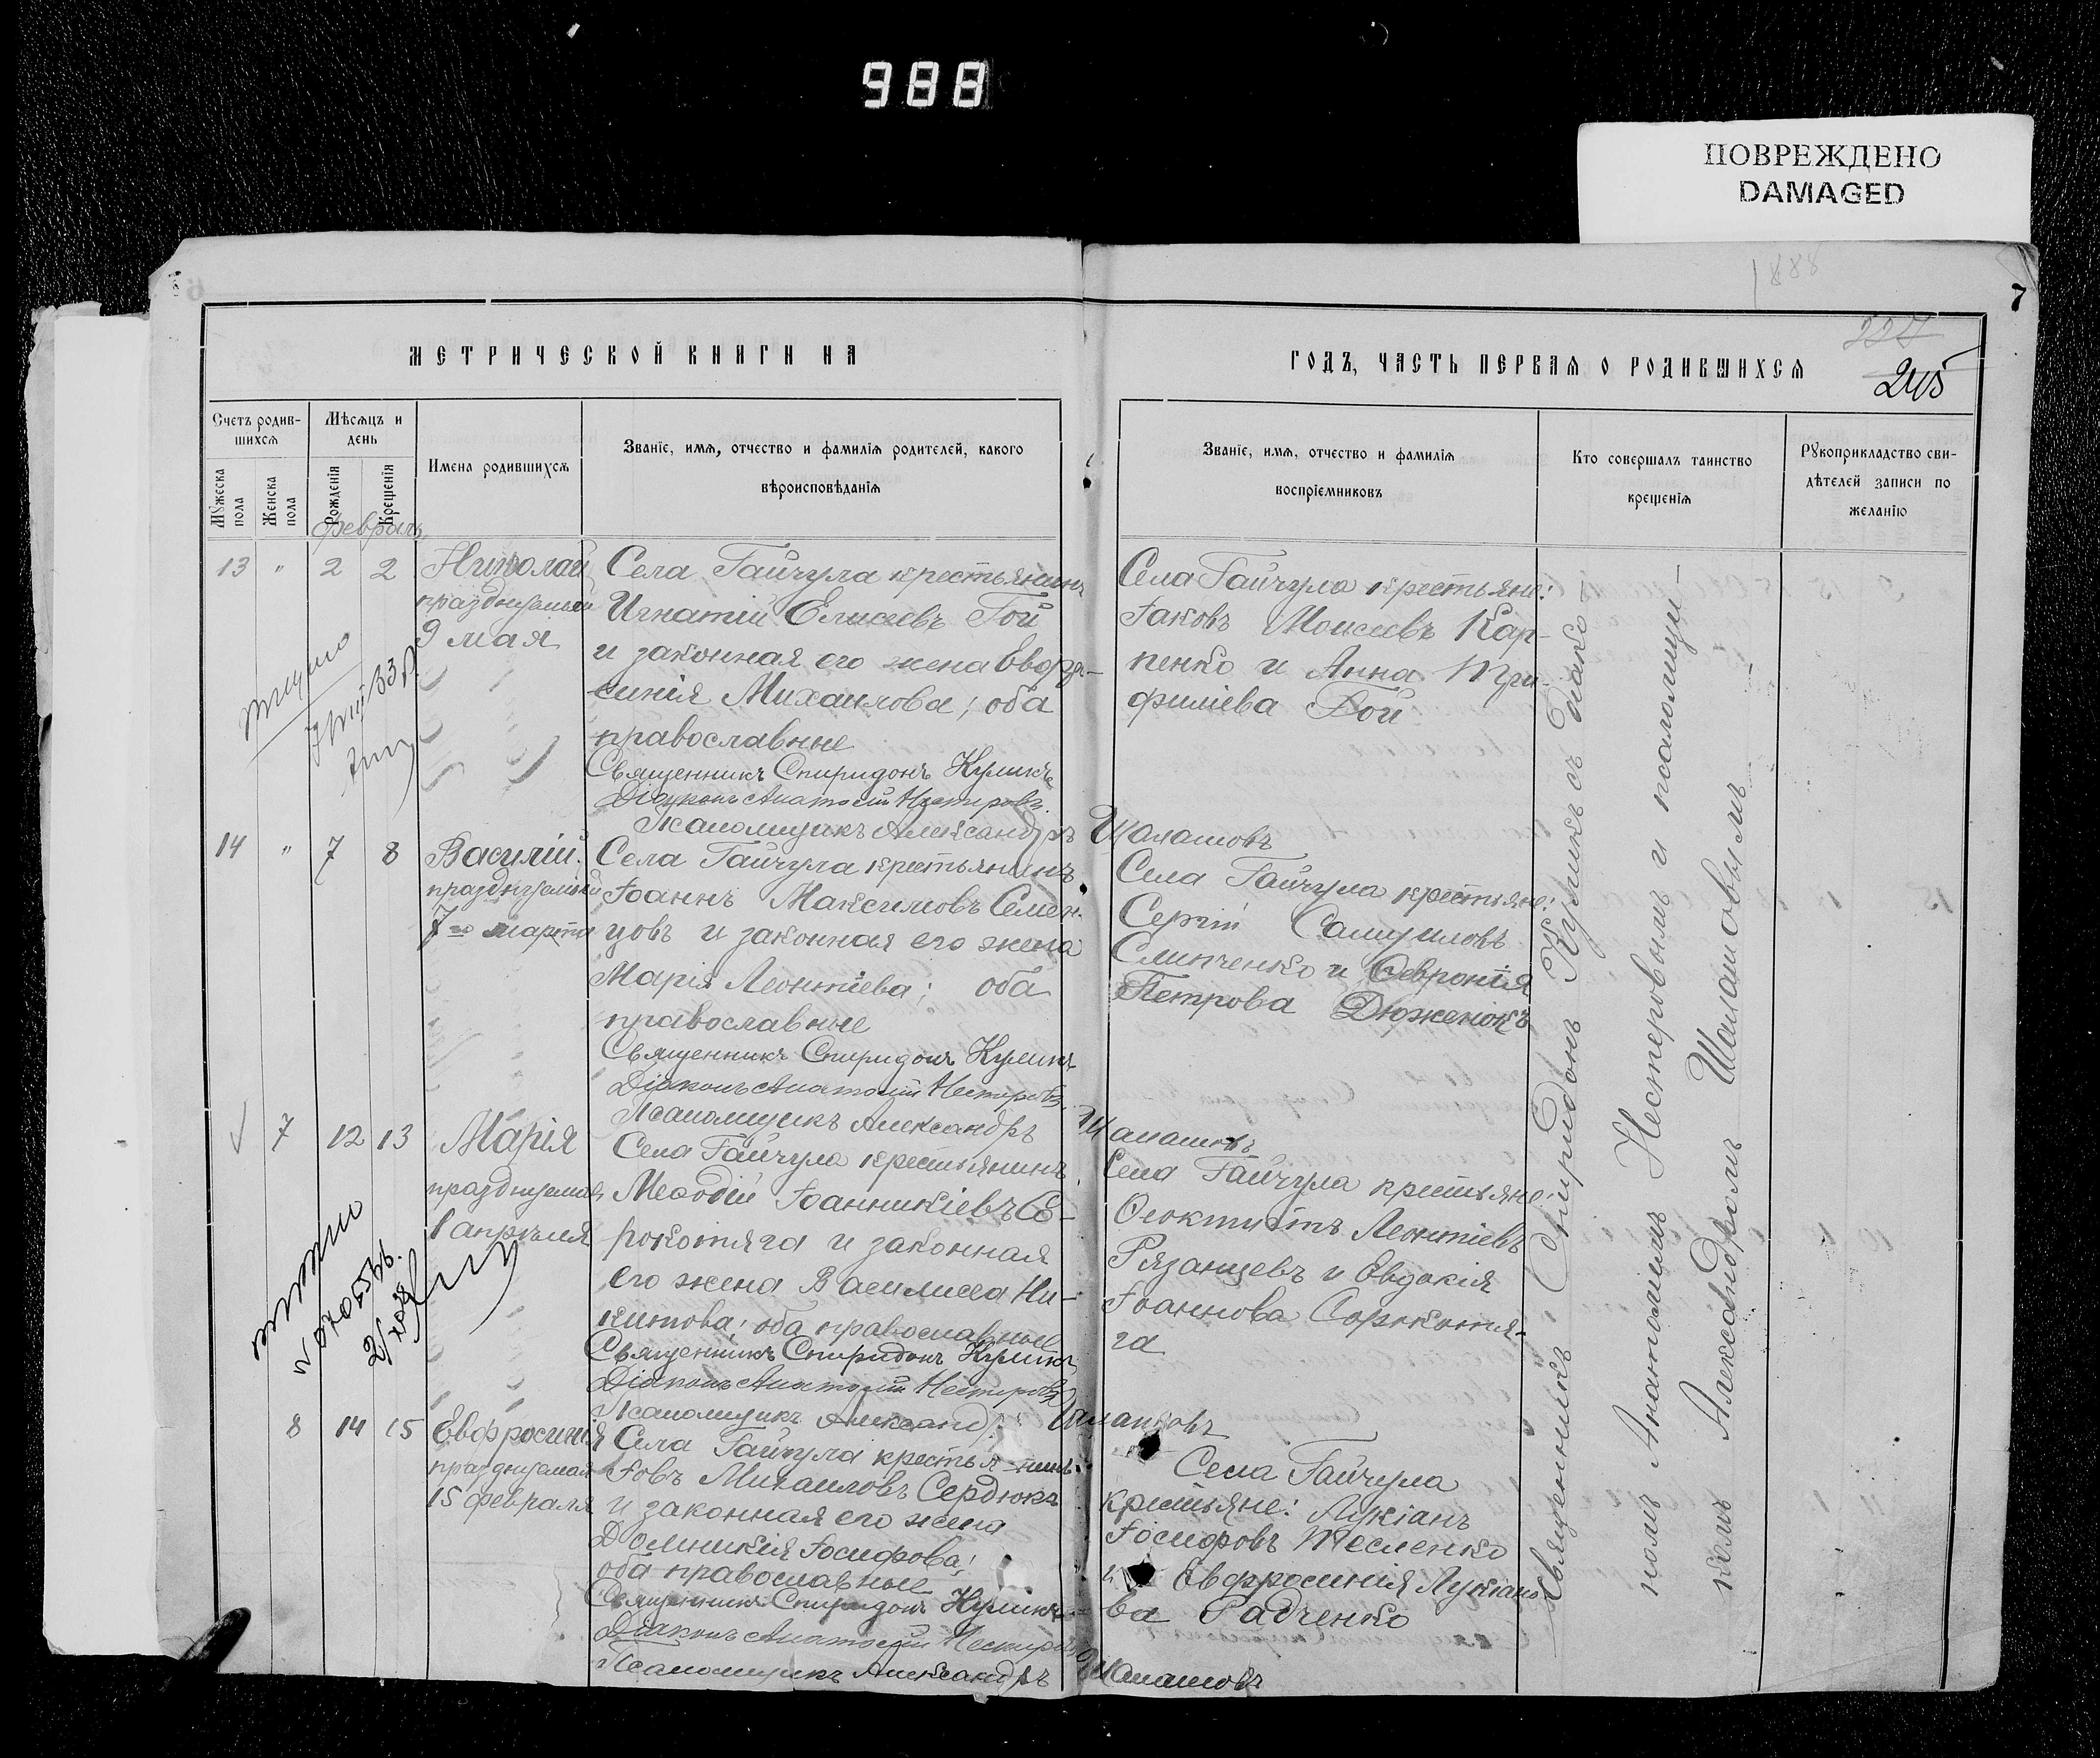 988
ПОВРЕЖДЕНО
DAMAGED
888
7
МЕТРИЧЕСКОЙ КНИГИ НА
ГОДЪ, ЧАСТЬ ПЕРВАЯ О РОДИВШИХСЯ
245
Счетъ родив-
шихся
Мѣсяцъ и
день
Мужеска
пола
Женска
пола
Рожденія
Крещенія
Имена родившихся
Званіе, имя, отчество и фамилія родителей, какого
вѣроисповѣданія
Званіе, имя, отчество и фамилія
воспріемниковъ
Кто совершалъ таинство
крещенія
Рукоприкладство сви-
дѣтелей записи по
желанію
Февраль
13 " 2 2
Николай
празднуемый
9 мая
Села Гайчула крестьянинъ
Игнатій Елисеевъ Гой
и законная его жена Евфро-
синія Михаилова; оба
православные
Священникъ Спиридонъ Куликъ
Діаконъ Анатолій Нестеровъ
Псаломщикъ Александръ Шаламовъ
Села Гайчула крестьяне:
Іаковъ Моисеевъ Кар-
пенко и Анна Три-
филіева Гой
14 " 7 8
Василій
празднуемый
7го марта
Села Гайчула крестьянинъ
Іоаннъ Максимовъ Семен-
цовъ и законная его жена
Марія Леонтіева; оба
православные
Священникъ Спиридонъ Куликъ
Діаконъ Анатолій Нестеровъ
Псаломщикъ Александръ Шаламовъ
Села Гайчула крестьяне:
Сергій Самуиловъ
Слипченко и Февронія
Петрова Дюженокъ
7 12 13
Марія
празднуемая
1 апрѣля
Села Гайчула крестьянинъ
Меѳодій Іоанникіевъ Со-
рокотяга и законная
его жена Василиса Ни-
китова; оба православные
Священникъ Спиридонъ Куликъ
Діаконъ Анатолій Нестеровъ
Псаломщикъ Александръ Шаламовъ
Села Гайчула крестьяне:
Ѳеоктистъ Леонтіевъ
Рязанцевъ и Евдокія
Іоаннова Сорокотя-
га
8 14 15
Евфросинія
празднуемая
15 февраля
Села Гайчула крестьянинъ
Іовъ Михаиловъ Сердюкъ
и законная его жена
Домникія Іосифова;
оба православные
Священникъ Спиридонъ Куликъ
Діаконъ Анатолій Нестеровъ
Псаломщикъ Александръ Шаламовъ
Села Гайчула
крестьяне: Лукіанъ
Іосифовъ Тесленко
и Евфросинія Лукіано-
ва Радченко
Священникъ Спиридонъ Куликъ съ діако-
номъ Анатоліемъ Нестеровымъ и псаломщи-
комъ Александромъ Шаламовымъ